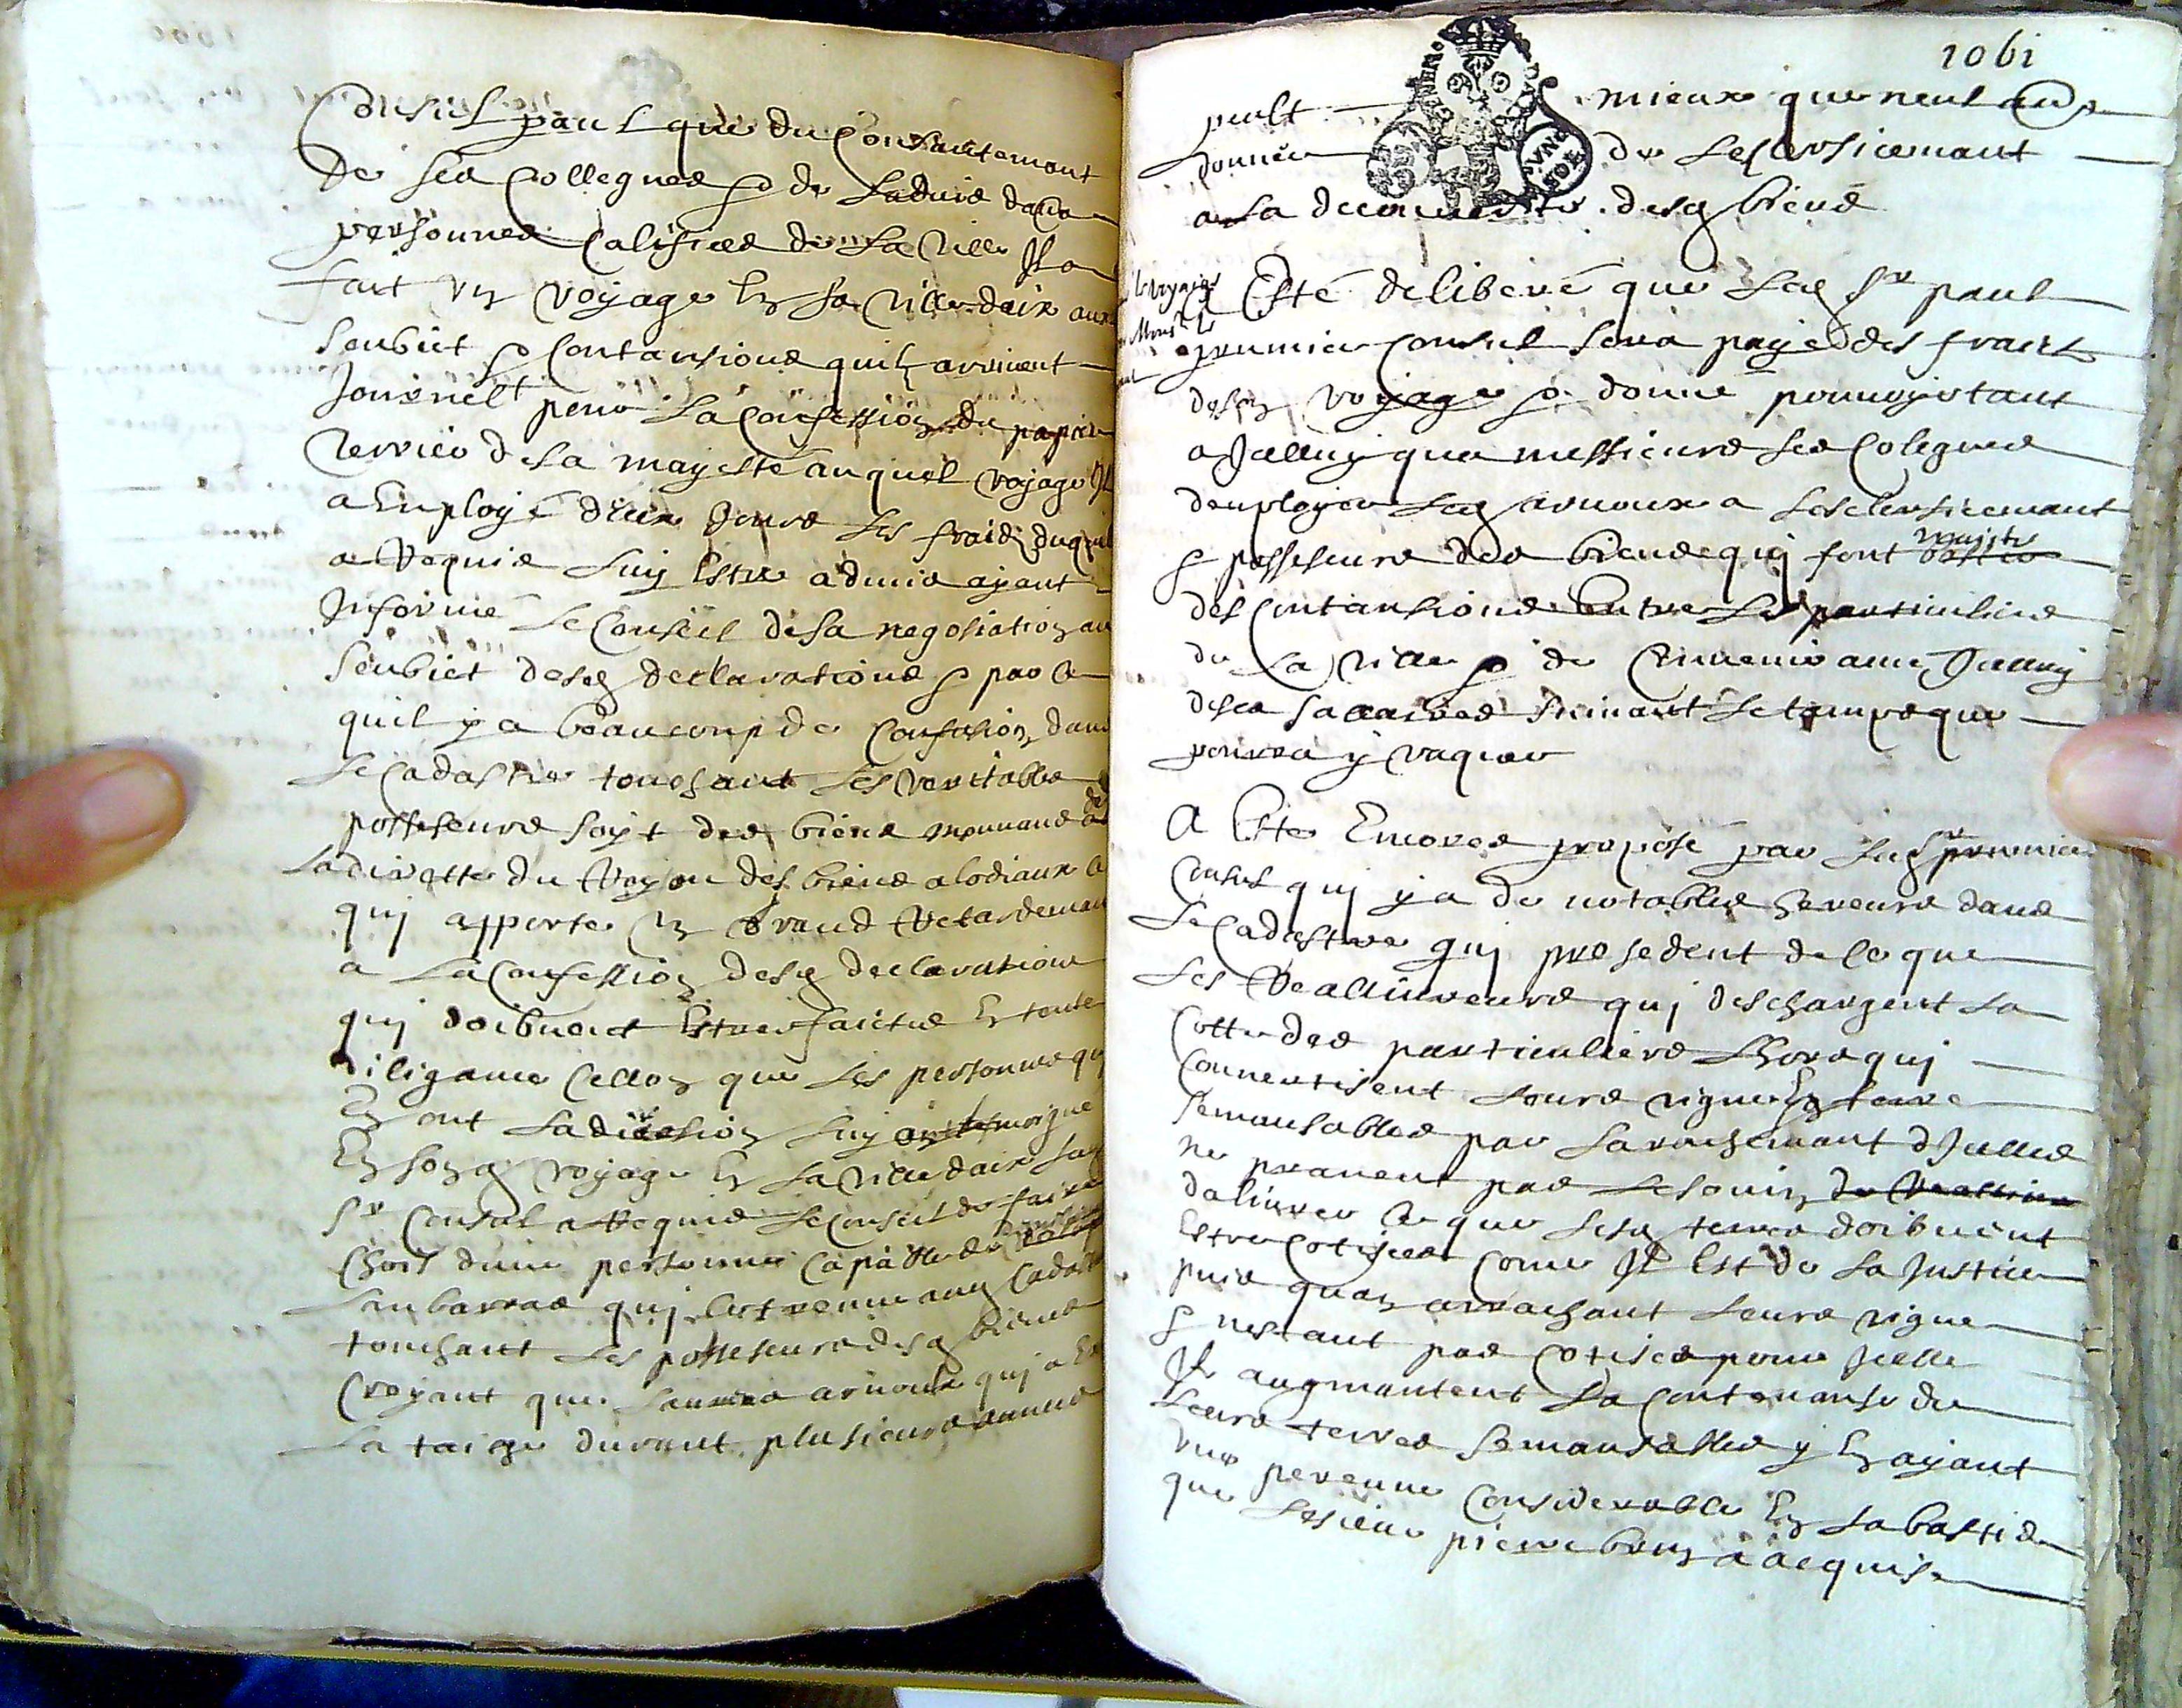 Consul paul que du Consantemant
de ses Collegues & de Ladvis daûs
personnes Calisiees de La ville Jl a
fait un voyage En sa ville daix aux
subiet & Contansions quil arrivent
Journelt pour La Confession du papier
terrier de sa mayesté auquel voyage Jl
a Employé dix Jours Les fraidz duquel
a Requis Luy Estre admis ayant
Jnformé Le Conseil de sa negosiation au
subiet desd declarations & par ce
quil y a beaucoup de Confusion dans
Le Cadastre touchant Les veritables
possesseurs soyt des biens mouvans de
La directe du Roy ou des biens alodiaux ce
quj apporte un Grand Retardemant
a La Confession desd declarations
quj doibuent Estre faictes En toute
diligance sellon que Les personnes quj
En ont La direction Luy ont tesmoigne
En sond voyage En La ville daix Led
Sr Consul a Requis Le Conseil de faire
Choix dune personne Capable de
Lanbarras quj est venu aud Cadastre
touchant Les possesseurs desd biens
Croyant que arnoux quj a
La taige durant plusieurs annees
1061
peult mieux que neul au[tre]
donner de Lesclersicemant
a La decouverte desd biens
Le voyage
Monsr Le
A Esté deliberé que Led Sr paul
premier Consul sera payé des fraix
deson voyage & donné pouvoir tant
a Jcelluy que messieurs ses Colegues
denployer Led arnoux a Lesclersicemant
& possesseurs des biens quj sont
des Contansions Entre Les particuliers
de La ville & de Convenir avec Jcelluy
de ses sallaires suivant Le temps que
pourra y vaquer
A Este Encores proposé par Led Sr premier
Consul quj y a de notables Erreurs dans
Le Cadastre quj prosedent de ce que
Les Reallivreurs quj deschargent La
Cotte des particuliers Lhors quj
Convertisent Leurs vignes En terre
semansables par Larrachemant dJcelles
ne pranent pas Le souin
dalivrer ce que Lesd terres doibuent
Estre Cotisees Come Jl Est de La Justice
puis quan arrachant Leurs vignes
& nestant pas Cotises pour Jcelle
Jls augmantent La Contenanse de
Leurs terres semansables y En ayant
une preuve Considerable En La bastide
que Lesieur pierre brun a acquise